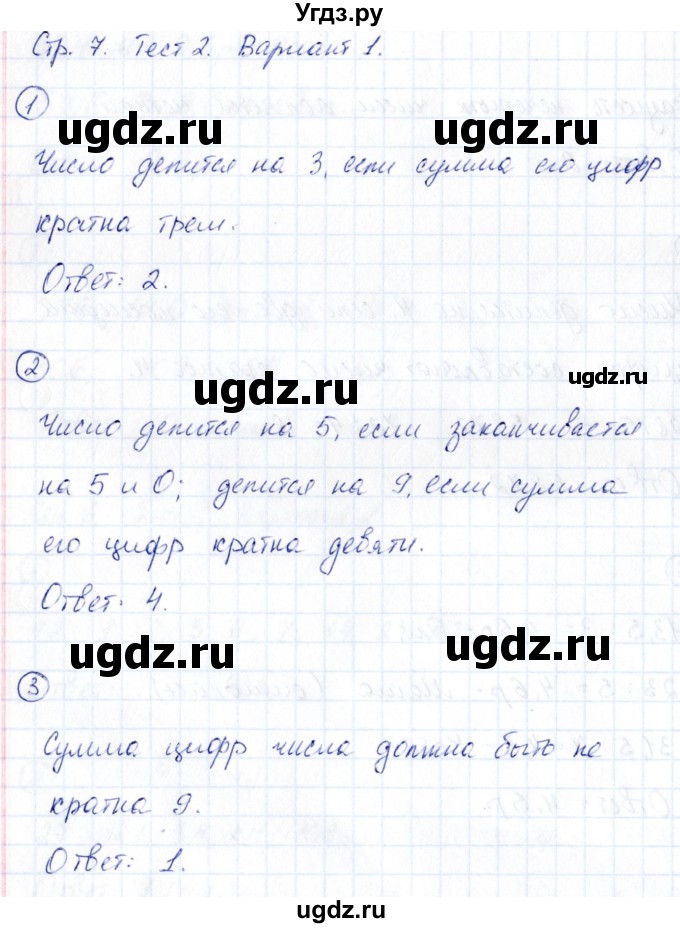 Угдз.ру
Стр. 7. Тест 2. Вариант 1.
1
ugdz.ru ugdz.ru
Число делится на 3, если сумма его цифр
кратна трем.
Ответ: 2.
2
ugdz.ru ugdz.ru
Число делится на 5, если заканчивается
на 5 и 0; делится на 9, если сумма
его цифр кратна девяти.
Ответ: 4.
ugdz.ru ugdz.ru
3
Сумма цифр числа должна быть не
кратна 9.
Ответ: 1.
ugdz.ru